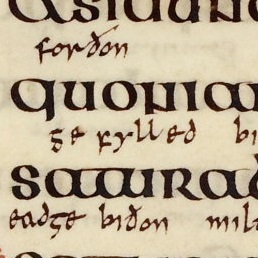 forðon
quonia
ge fylled bi
satura
eadge biðon milt